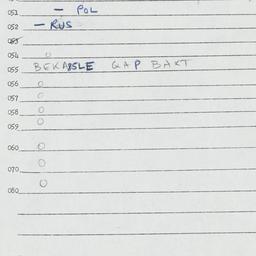 051 — POL
052 — RUS
053
054
055 BEKABLE GAP BAKT
056
057
058
059
060
070
080